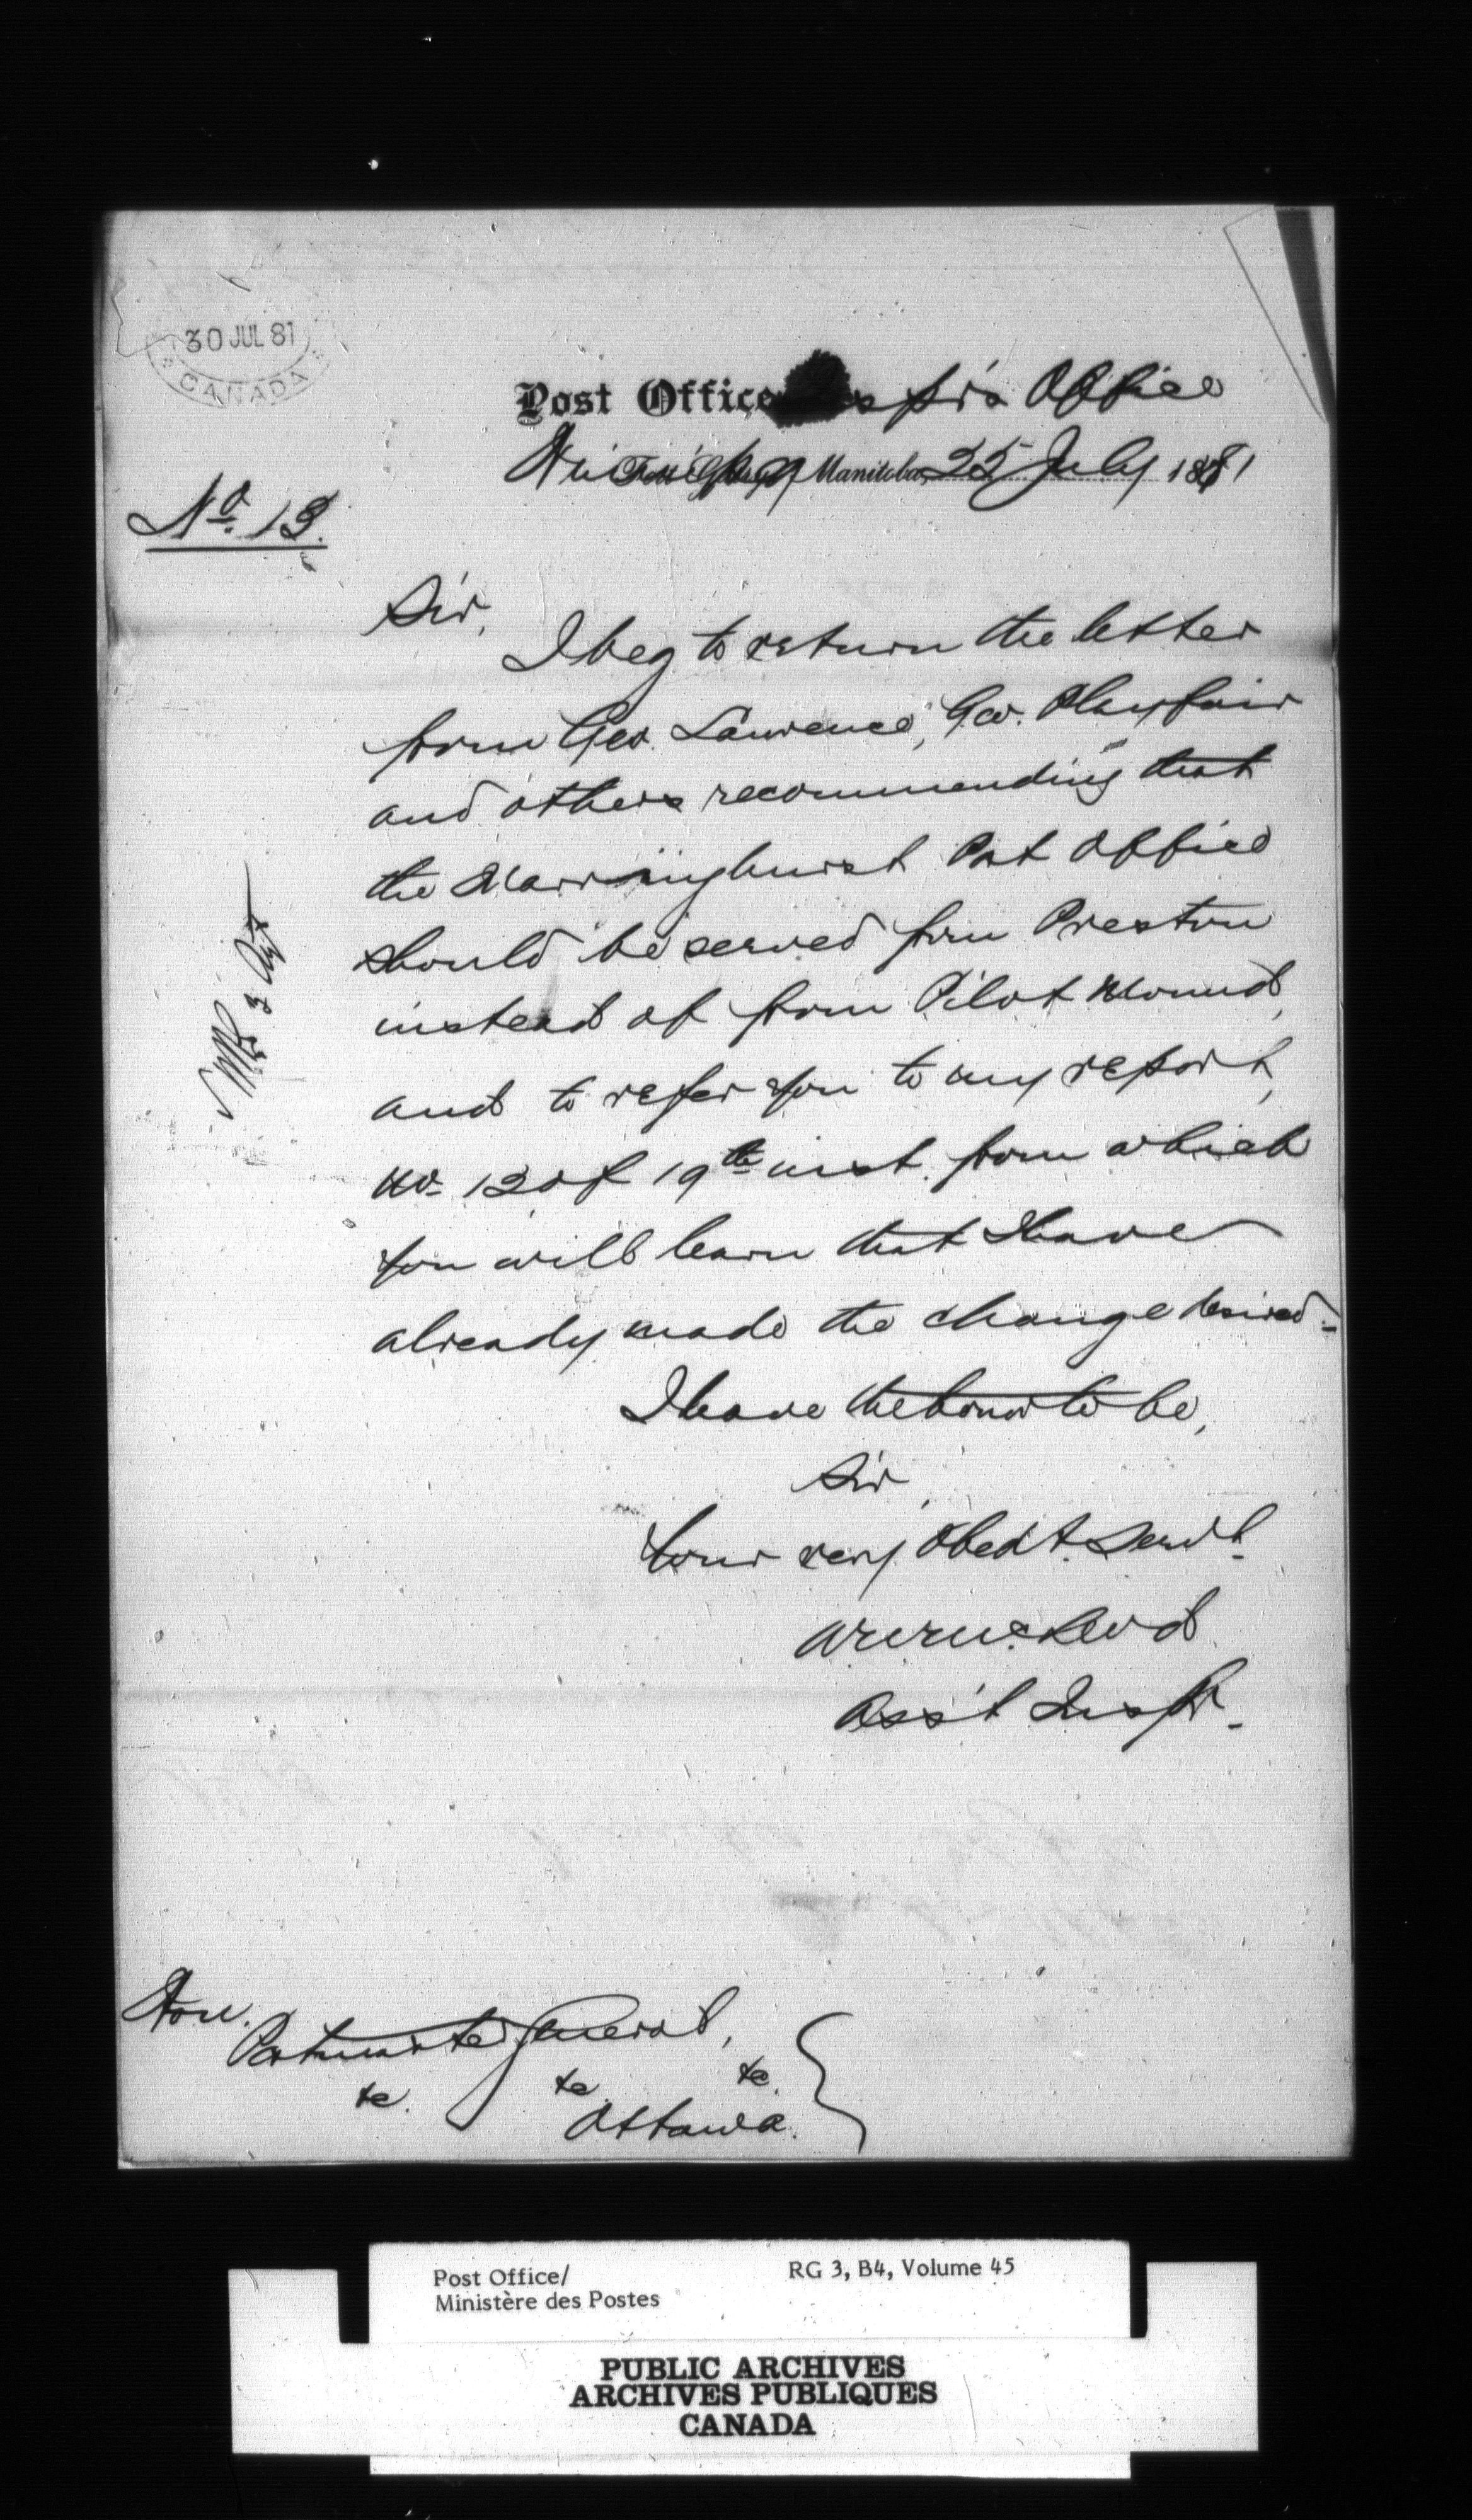 30 JUL 81
CANADA
Post Office Insp'r's Office
Winnipeg Manitoba, 25 July 1881
No. 13.
Sir,
I beg to return the letter
from Geo. Lawrence, Geo. Playfair
and others recommending that
the Marringhurst Post Office
should be served from Preston
instead of from Pilot Mound,
and to refer you to my report,
No. 12 of 19th inst. from which
you will learn that I have
already made the change desired.-
I have the honor to be,
Sir,
Your very Obed't. Serv't.
Ass't Insp'r.
Hon.
Postmaster General,
&c. &c. &c.
Ottawa.
Post Office/
Ministère des Postes
RG 3, B4, Volume 45
PUBLIC ARCHIVES
ARCHIVES PUBLIQUES
CANADA